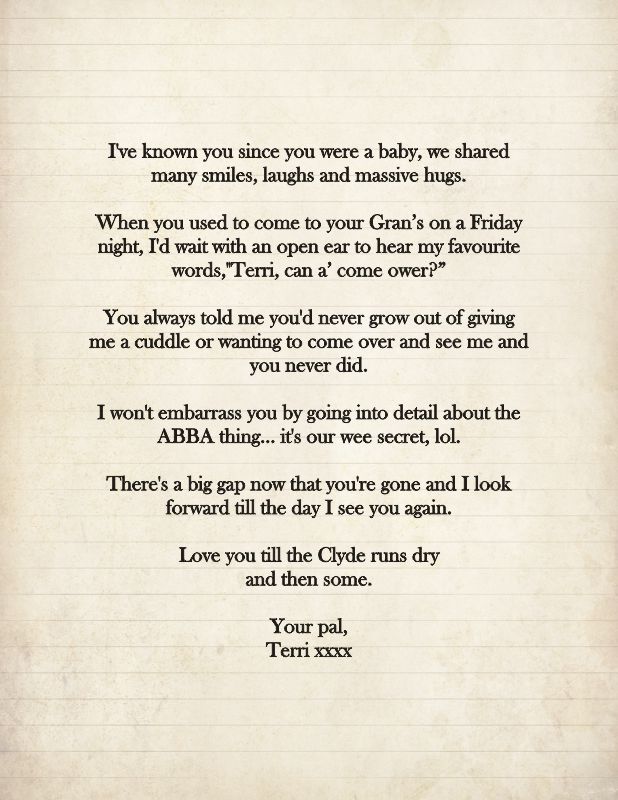 I've known you since you were a baby, we shared
many smiles, laughs and massive hugs.
When you used to come to your Gran’s on a Friday
night, I'd wait with an open ear to hear my favourite
words,"Terri, can a’ come ower?”
You always told me you'd never grow out of giving
me a cuddle or wanting to come over and see me and
you never did.
I won't embarrass you by going into detail about the
ABBA thing... it's our wee secret, lol.
There's a big gap now that you're gone and I look
forward till the day I see you again.
Love you till the Clyde runs dry
and then some.
Your pal,
Terri xxxx